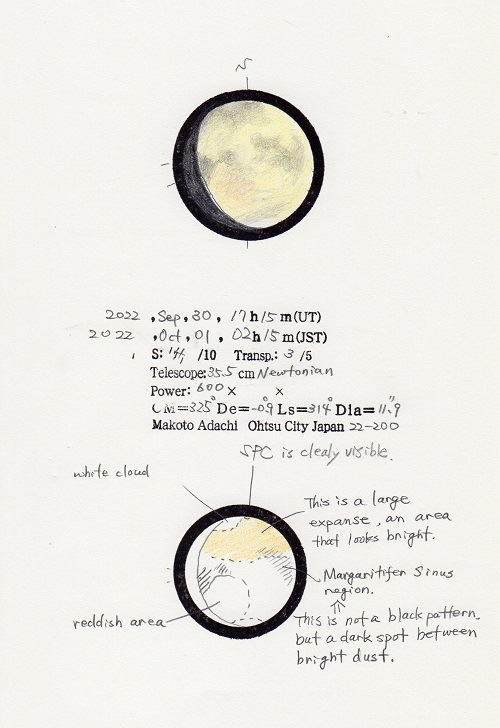 N
2022 , Sep, 30 , 17h15m(UT)
2022 , Oct, 01 , 02h15m(JST)
S: /10 Transp.: 3 /5
Telescope: 35.5 cm Newtonian
Power: 600 × ×
CM=325° De=-0.9 Ls=314° Dia=11.9"
Makoto Adachi Ohtsu City Japan 22-200
SPC is clealy visible.
white cloud
This is a large
expanse, an area
that looks bright.
Margaritifer Sinus
region.
reddish area
This is not a black pattern.
but a dark spot between
bright dust.